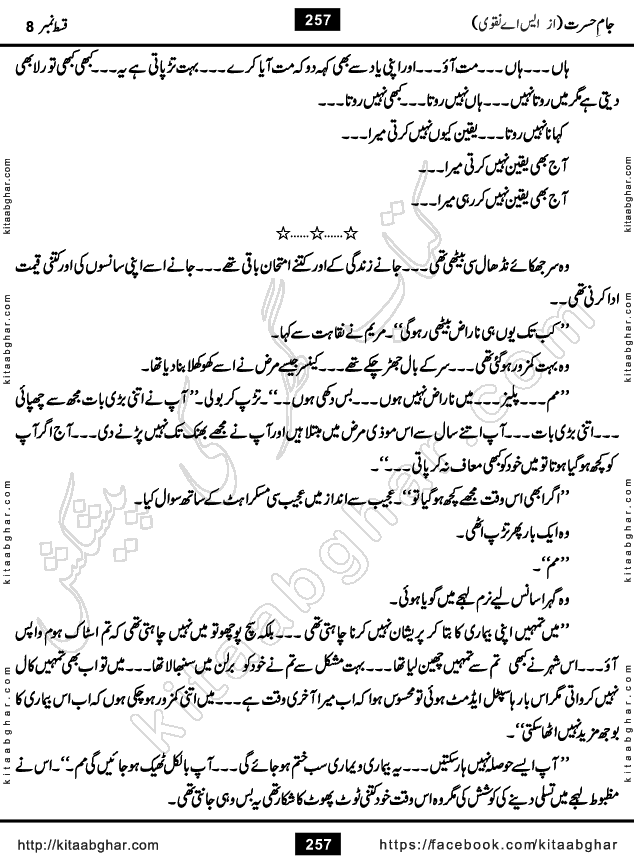 جامِ حسرت (از ایس اے نقوی) 257 قسط نمبر 8
ہاں ۔۔۔ ہاں ۔۔۔ مت آؤ ۔۔۔ اور اپنی یاد سے بھی کہہ دو کہ مت آیا کرے ۔۔۔ بہت تڑپاتی ہے یہ ۔۔۔ کبھی کبھی تو رلا بھی
دیتی ہے مگر میں روتا نہیں ۔۔۔ ہاں نہیں روتا ۔۔۔ کبھی نہیں روتا ۔۔۔
کہا نا نہیں روتا ۔۔۔ یقین کیوں نہیں کرتی میرا ۔۔۔
آج بھی یقین نہیں کرتی میرا ۔۔۔
آج بھی یقین نہیں کر رہی میرا ۔۔۔
☆......☆......☆
وہ سر جھکائے نڈھال سی بیٹھی تھی ۔۔۔ جانے زندگی کے اور کتنے امتحان باقی تھے ۔۔۔ جانے اسے اپنی سانسوں کی اور کتنی قیمت
ادا کرنی تھی ۔۔
’’کب تک یوں ہی ناراض بیٹھی رہو گی‘‘۔ مریم نے نقاہت سے کہا۔
وہ بہت کمزور ہو گئی تھی ۔۔۔ سر کے بال جھڑ چکے تھے ۔۔۔ کینسر جیسے مرض نے اسے کھوکھلا بنا دیا تھا۔
’’مم ۔۔۔ پلیز ۔۔۔ میں ناراض نہیں ہوں ۔۔۔ بس دکھی ہوں ۔۔‘‘۔ تڑپ کر بولی۔’’ آپ نے اتنی بڑی بات مجھ سے چھپائی
۔۔۔ اتنی بڑی بات ۔۔۔ آپ اتنے سال سے اس موذی مرض میں مبتلا ہیں اور آپ نے مجھے بھنک تک نہیں پڑنے دی ۔۔۔ آج اگر آپ
کو کچھ ہو گیا ہوتا تو میں خود کو کبھی معاف نہ کر پاتی ۔۔۔‘‘۔
’’اگر ابھی اس وقت مجھے کچھ ہو گیا تو‘‘۔ عجیب سے انداز میں عجیب سی مسکراہٹ کے ساتھ سوال کیا۔
وہ ایک بار پھر تڑپ اٹھی۔
’’مم‘‘۔
وہ گہرا سانس لیے نرم لہجے میں گویا ہوئی۔
’’میں تمہیں اپنی بیماری کا بتا کر پریشان نہیں کرنا چاہتی تھی ۔۔۔ بلکہ سچ پوچھو تو میں نہیں چاہتی تھی کہ تم اسٹاک ہوم واپس
آؤ ۔۔۔ اس شہر نے کبھی تم سے تمہیں چھین لیا تھا ۔۔۔ بہت مشکل سے تم نے خود کو برلن میں سنبھالا تھا ۔۔۔ میں تو اب بھی تمہیں کال
نہیں کرواتی مگر اس بار ہاسپٹل ایڈمٹ ہوئی تو محسوس ہوا کہ اب میرا آخری وقت ہے ۔۔۔ میں اتنی کمزور ہو چکی ہوں کہ اب اس بیماری کا
بوجھ مزید نہیں اٹھا سکتی‘‘۔
’’آپ ایسے حوصلہ نہیں ہار سکتیں ۔۔۔ یہ بیماری ویماری سب ختم ہو جائے گی ۔۔۔ آپ بالکل ٹھیک ہو جائیں گی مم۔‘‘۔ اس نے
مظبوط لہجے میں تسلی دینے کی کوشش کی مگر وہ اس وقت خود کتنی ٹوٹ پھوٹ کا شکار تھی یہ بس وہی جانتی تھی۔
http://kitaabghar.com 257 https://facebook.com/kitaabghar
kitaabghar.com kitaabghar.com kitaabghar.com kitaabghar.com kitaabghar.com
kitaabghar.com kitaabghar.com kitaabghar.com kitaabghar.com kitaabghar.com
کتاب گھر کی پیشکش
kitaabghar.com